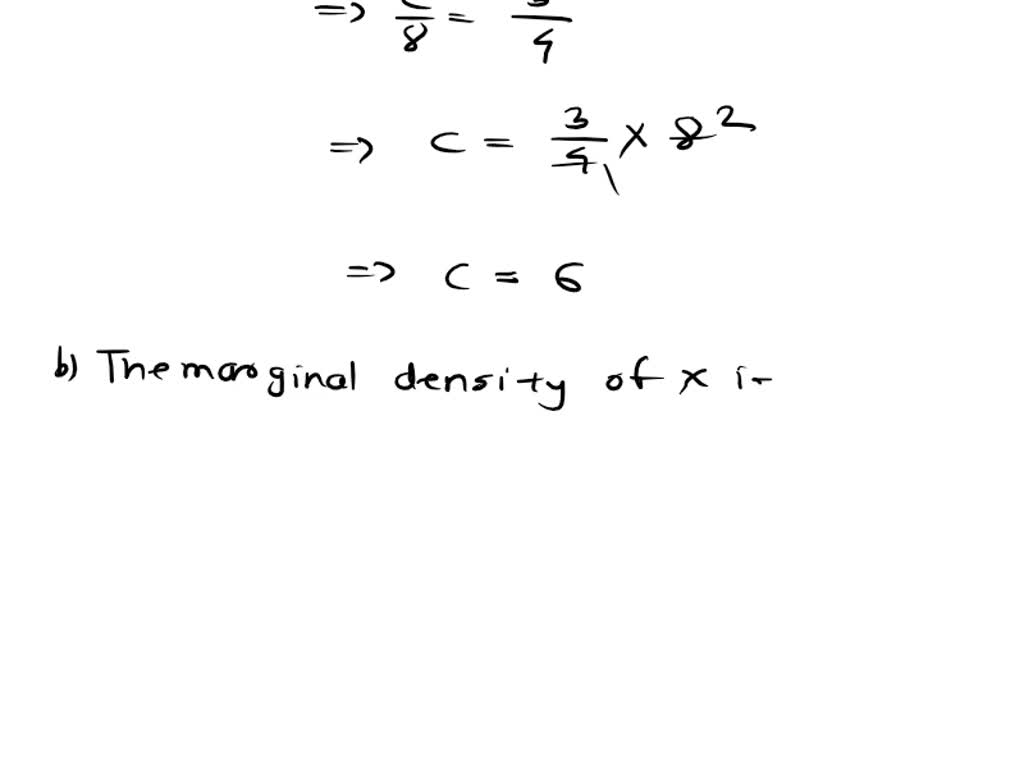 => C/8 = 3/4
=> C = 3/4 × 8 2
1
=> C = 6
b) The marginal density of x is